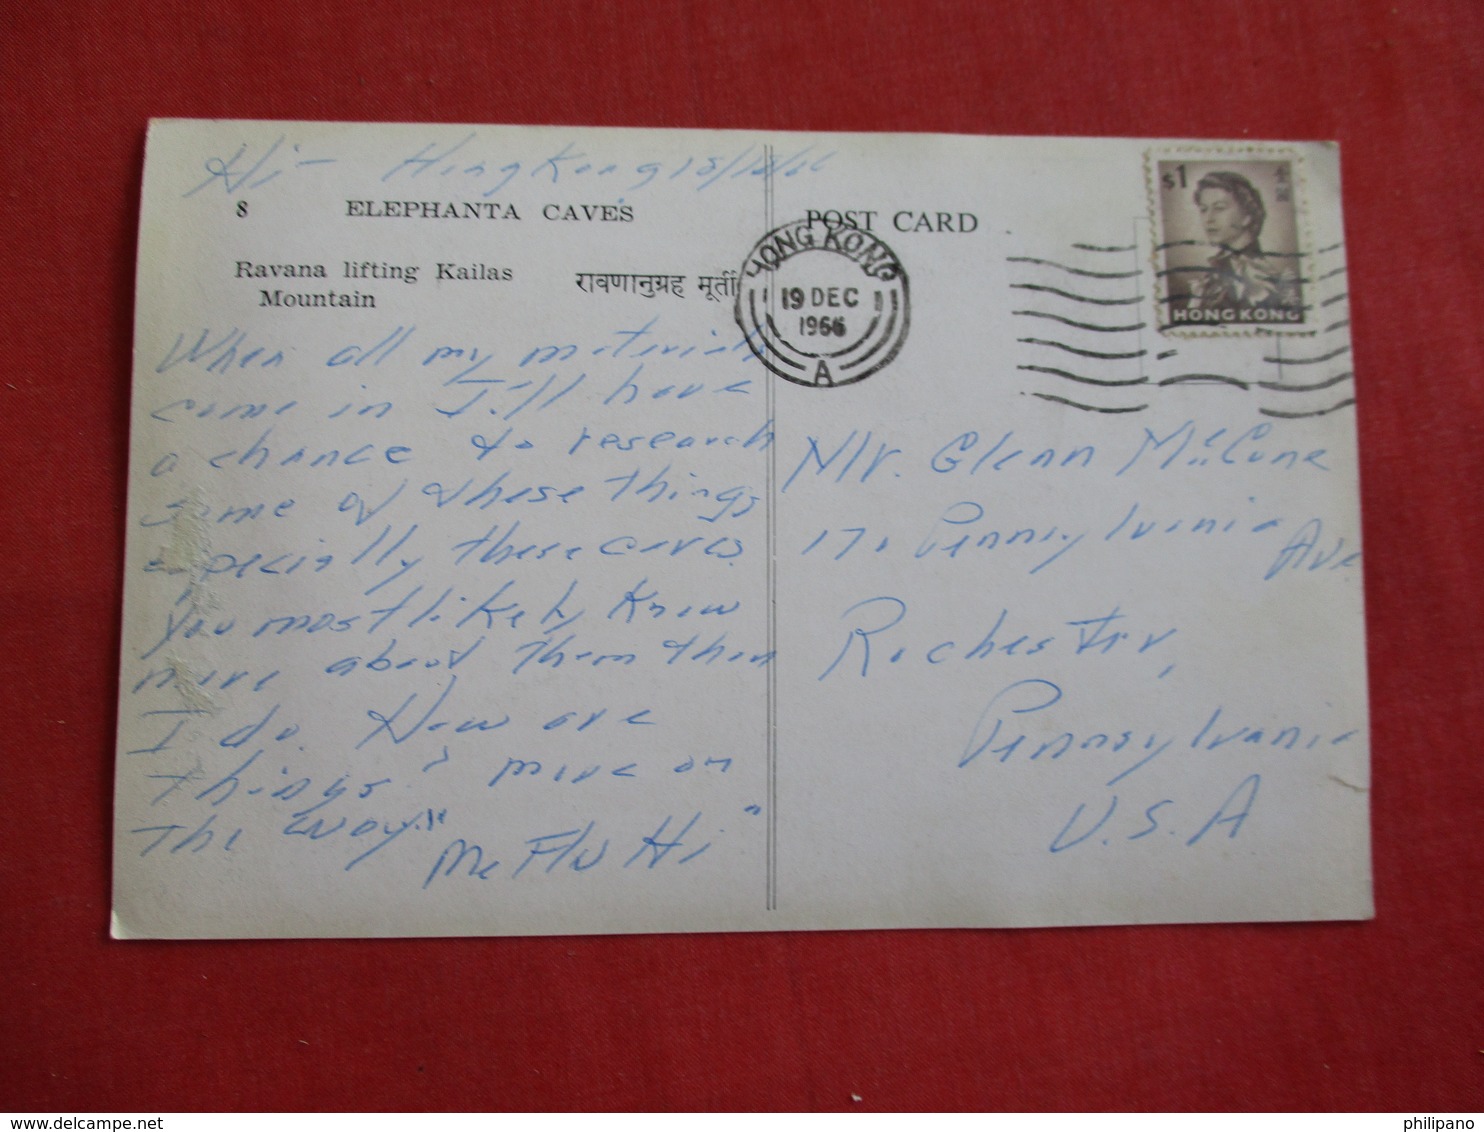 Hi - Hong Kong 18/12/66
8 ELEPHANTA CAVES
Ravana lifting Kailas
Mountain
रावणानुग्रह मूर्ती
When all my materials
come in I'll have
a chance to research
some of these things
especially these caves.
You most likely know
more about them than
I do. How are
things? more on
the way."
"Mc Flu Hi"
POST CARD
HONG KONG
19 DEC
1966
A
$1
HONG KONG
Mr. Glenn McCune
170 Pennsylvania
Ave
Rochester,
Pennsylvania
U.S.A
www.delcampe.net
philipano